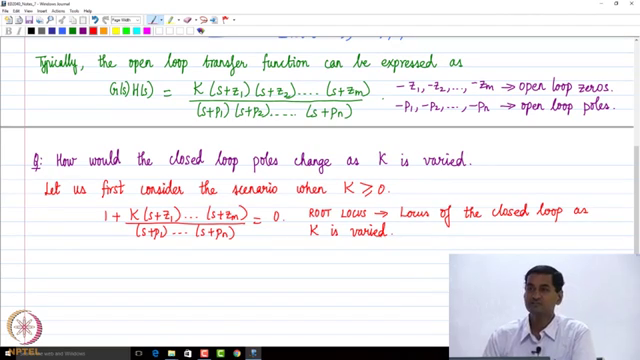 EE3040_Notes_7 - Windows Journal
File Edit View Insert Actions Tools Help
Page Width
Typically, the open loop transfer function can be expressed as
G(s)H(s) = K (s+z1) (s+z2) .... (s+zm) / (s+p1) (s+p2) ..... (s+pn) .
-z1, -z2, ..., -zm → open loop zeros.
-p1, -p2, ..., -pn → open loop poles.
Q: How would the closed loop poles change as K is varied.
Let us first consider the scenario when K ≥ 0.
1 + K (s+z1) ... (s+zm) / (s+p1) ... (s+pn) = 0.
ROOT LOCUS → Locus of the closed loop as
K is varied.
NPTEL